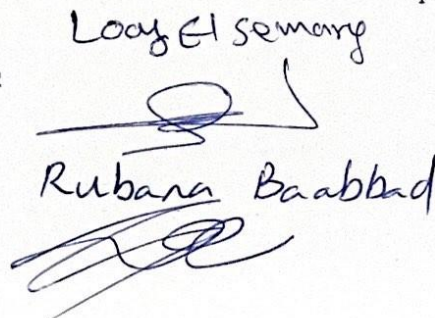 Loay El semary
Rubana Baabbad